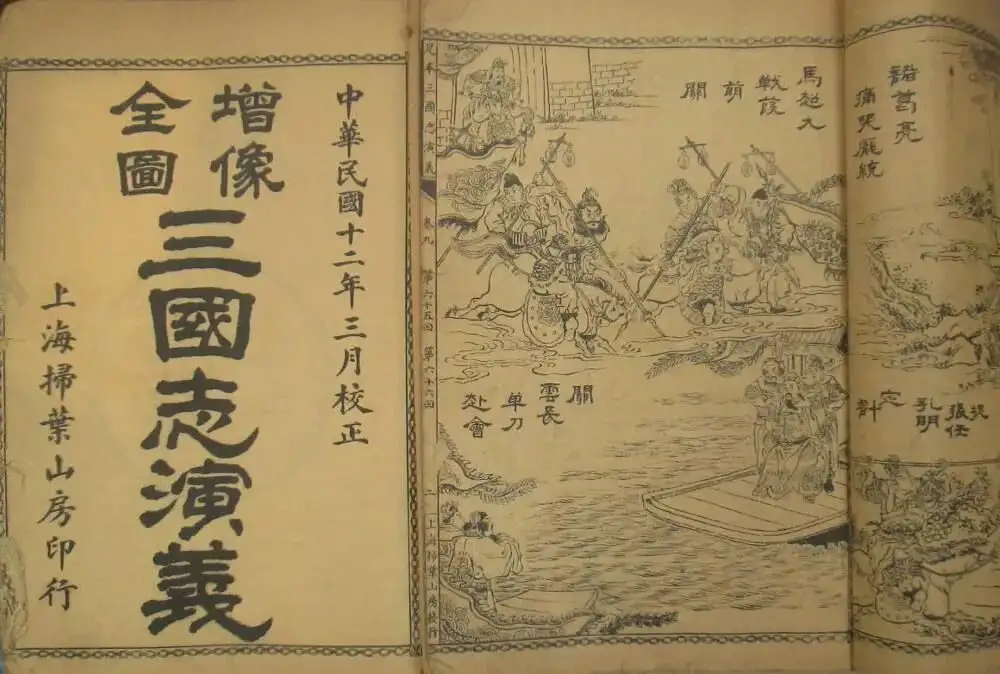 中華民國十二年三月校正
增像
全圖
三國志演義
上海掃葉山房印行
諸葛亮
痛哭龐統
捉
張任
孔明
定
計
馬超大
戰葭
萌
關
關
雲長
單刀
赴會
足本三國志演義 卷九 第六十五回 第六十六回 二 上海掃葉山房發行